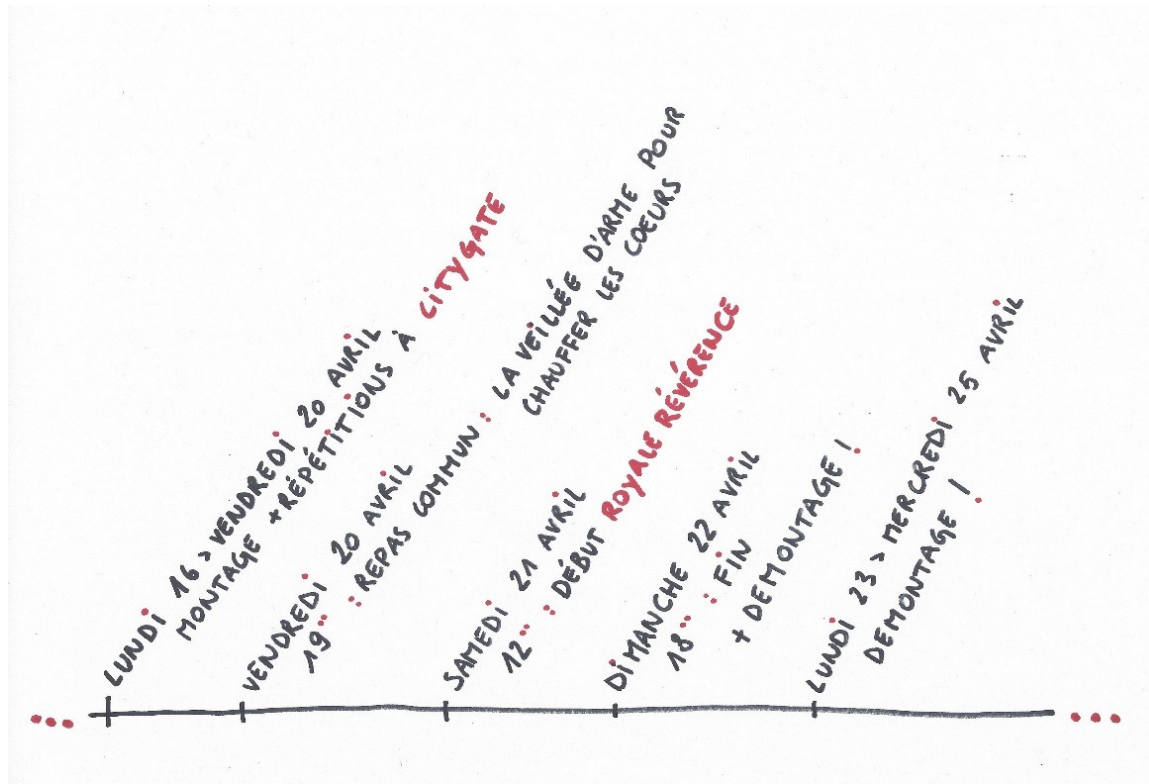 LUNDI 16 > VENDREDI 20 AVRIL
MONTAGE + RÉPÉTITIONS À CITYGATE
VENDREDI 20 AVRIL
19 : REPAS COMMUN : LA VEILLÉE D'ARME POUR
CHAUFFER LES COEURS
SAMEDI 21 AVRIL
12 : DÉBUT ROYALE RÉVÉRENCE
DIMANCHE 22 AVRIL
18 : FIN
+ DEMONTAGE !
LUNDI 23 > MERCREDI 25 AVRIL
DEMONTAGE !